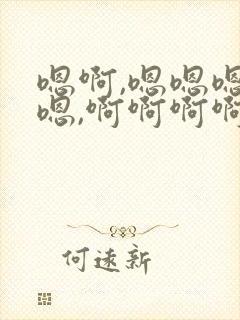 嗯啊,嗯嗯嗯
嗯,啊啊啊啊
何遠新